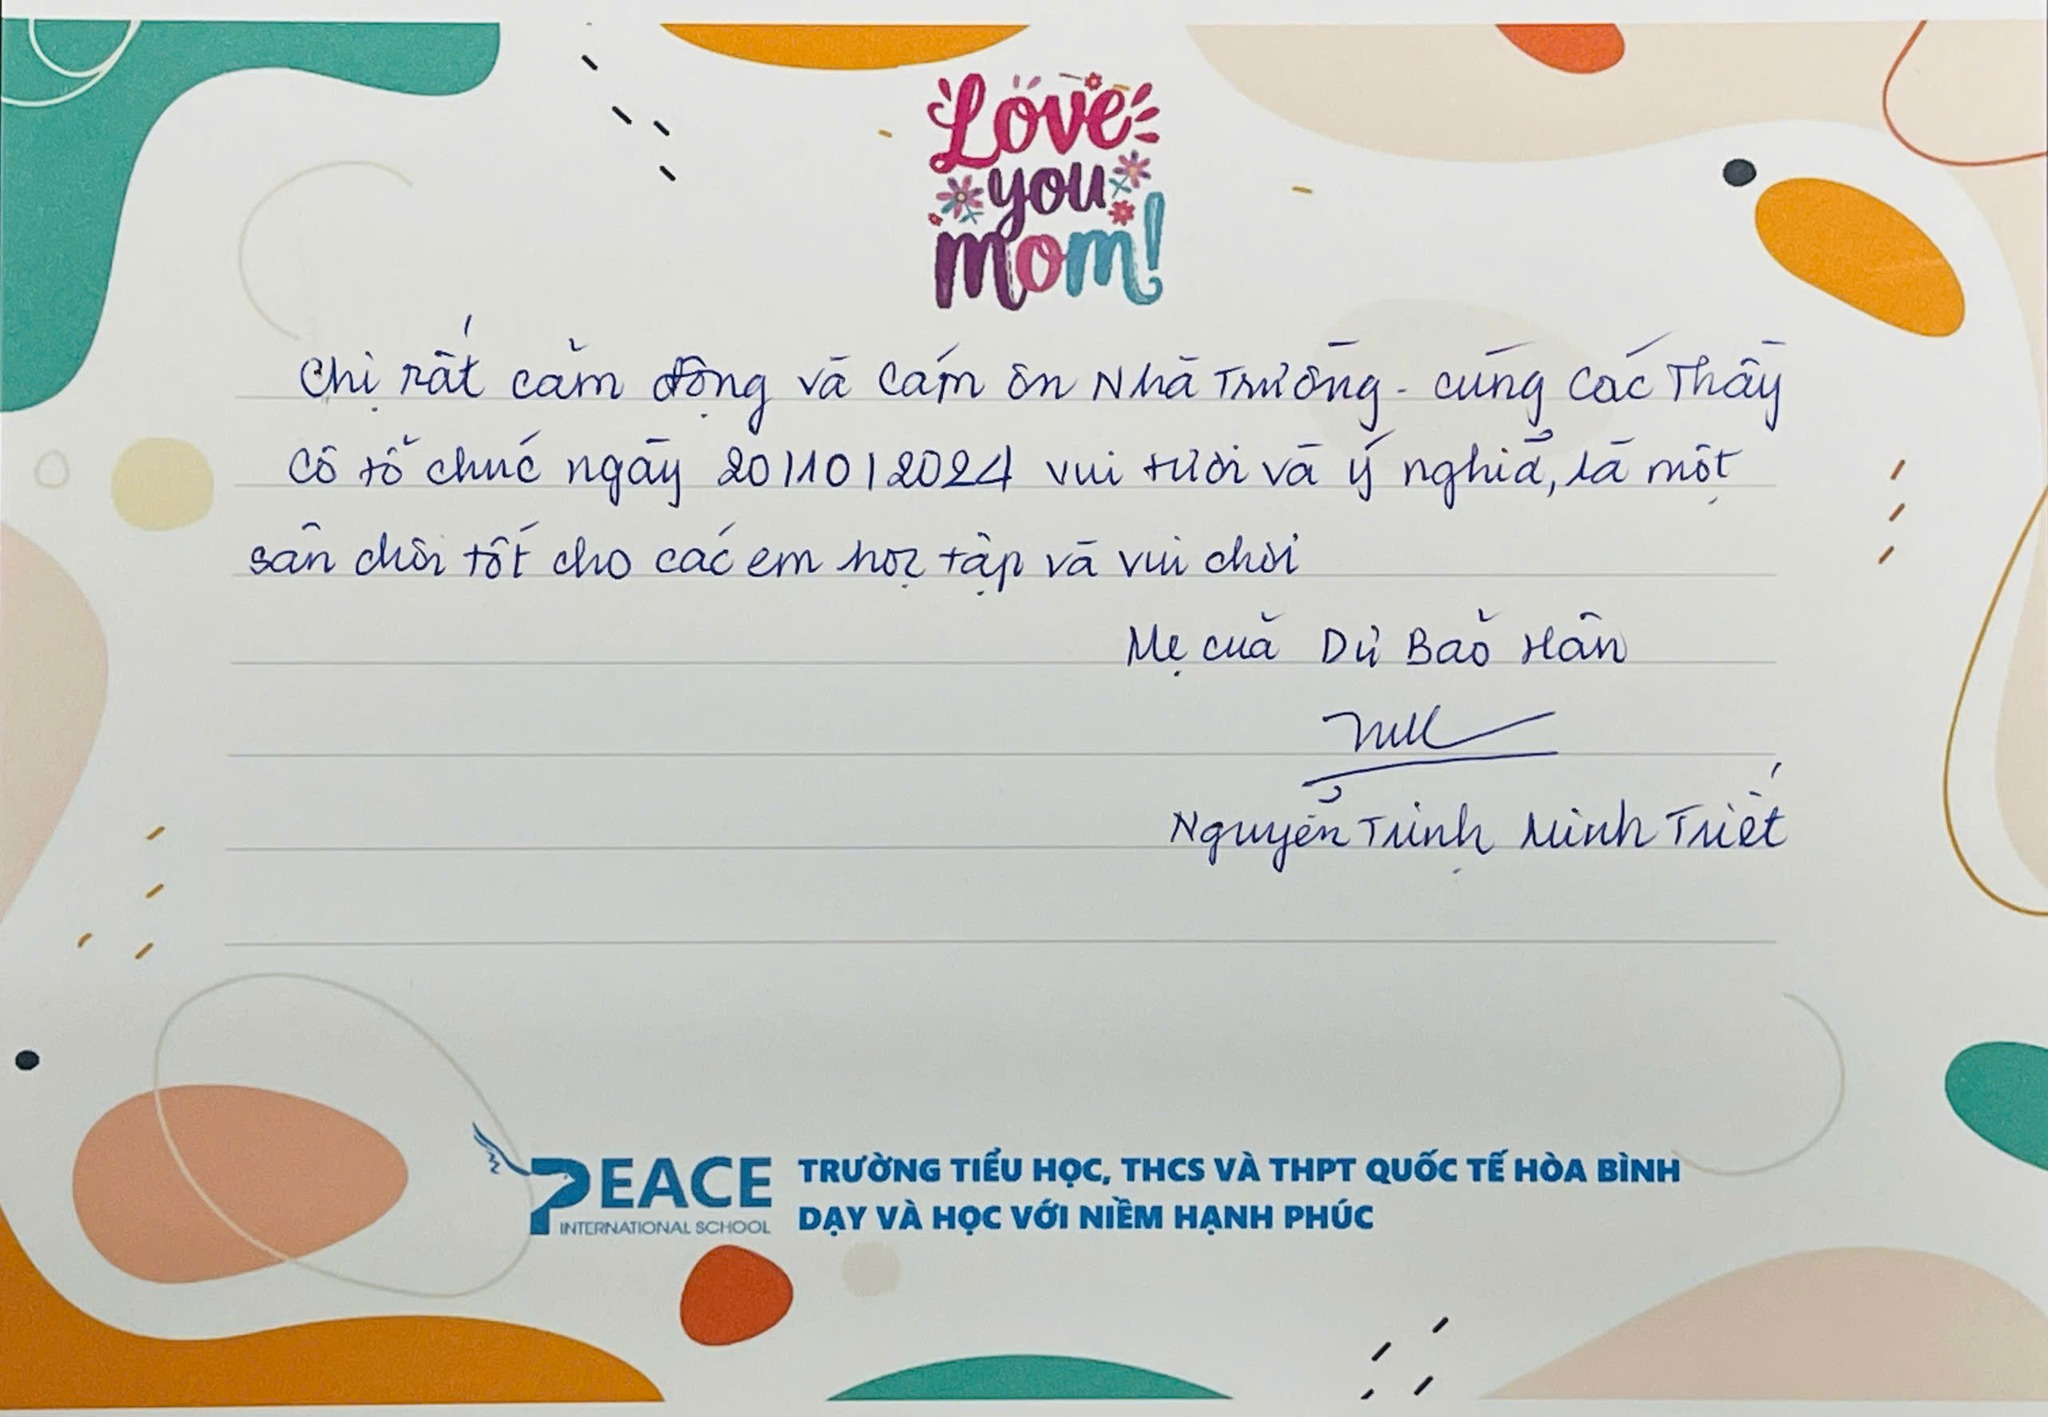 Love
you
mom!
Chị rất cảm động và cám ơn Nhà Trường - cùng các Thầy
Cô tổ chức ngày 20/10/2024 vui tươi và ý nghĩa, là một
sân chơi tốt cho các em học tập và vui chơi
Mẹ của Dư Bảo Hân
Nguyễn Trịnh Minh Triết
PEACE
INTERNATIONAL SCHOOL
TRƯỜNG TIỂU HỌC, THCS VÀ THPT QUỐC TẾ HÒA BÌNH
DẠY VÀ HỌC VỚI NIỀM HẠNH PHÚC